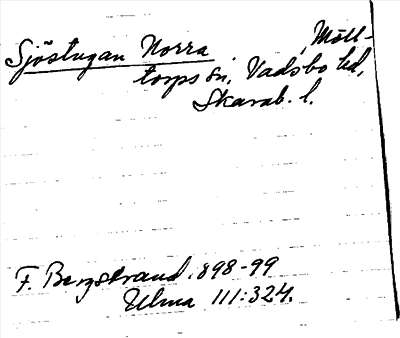 Sjöstugan Norra, Mölltorps sn, Vadsbo hd,
Skarab. l.
F. Bergstrand 1898-99
Ulma 111:324.